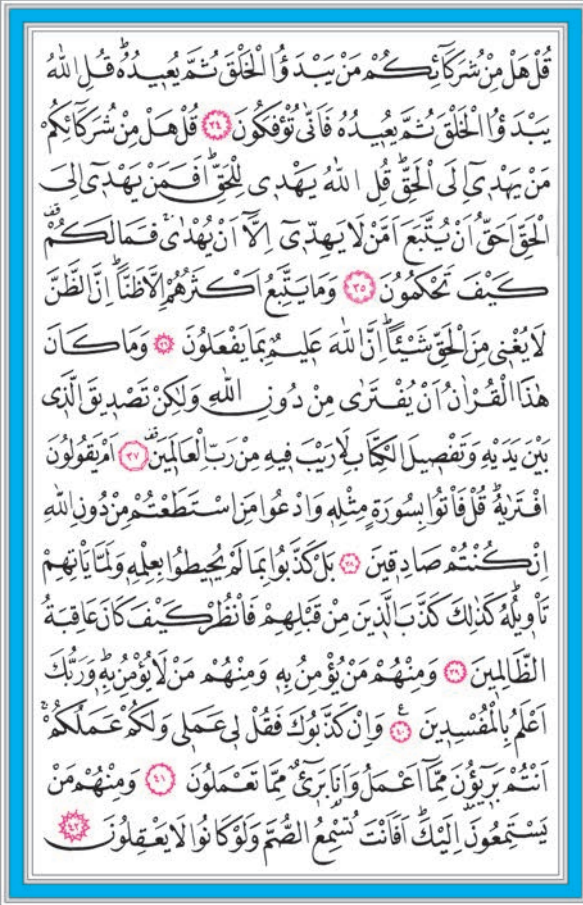 قُلْ هَلْ مِنْ شُرَكَٓائِكُمْ مَنْ يَبْدَؤُا الْخَلْقَ ثُمَّ يُعٖيدُهُۜ قُلِ اللّٰهُ
يَبْدَؤُا الْخَلْقَ ثُمَّ يُعٖيدُهُ فَاَنّٰى تُؤْفَكُونَ ﴿٣٤﴾ قُلْ هَلْ مِنْ شُرَكَٓائِكُمْ
مَنْ يَهْدٖٓي اِلَى الْحَقِّۜ قُلِ اللّٰهُ يَهْدٖي لِلْحَقِّۜ اَفَمَنْ يَهْدٖٓي اِلَى
الْحَقِّ اَحَقُّ اَنْ يُتَّبَعَ اَمَّنْ لَا يَهِدّٖٓي اِلَّٓا اَنْ يُهْدٰىۚ فَمَا لَكُمْ۠
كَيْفَ تَحْكُمُونَ ﴿٣٥﴾ وَمَا يَتَّبِعُ اَكْثَرُهُمْ اِلَّا ظَنًّاۜ اِنَّ الظَّنَّ
لَا يُغْنٖي مِنَ الْحَقِّ شَيْـًٔاۜ اِنَّ اللّٰهَ عَلٖيمٌ بِمَا يَفْعَلُونَ ﴿٣٦﴾ وَمَا كَانَ
هٰذَا الْقُرْاٰنُ اَنْ يُفْتَرٰى مِنْ دُونِ اللّٰهِ وَلٰكِنْ تَصْدٖيقَ الَّذٖي
بَيْنَ يَدَيْهِ وَتَفْصٖيلَ الْكِتَابِ لَا رَيْبَ فٖيهِ مِنْ رَبِّ الْعَالَمٖينَ۠ ﴿٣٧﴾ اَمْ يَقُولُونَ
افْتَرٰيهُۜ قُلْ فَأْتُوا بِسُورَةٍ مِثْلِهٖ وَادْعُوا مَنِ اسْتَطَعْتُمْ مِنْ دُونِ اللّٰهِ
اِنْ كُنْتُمْ صَادِقٖينَ ﴿٣٨﴾ بَلْ كَذَّبُوا بِمَا لَمْ يُحٖيطُوا بِعِلْمِهٖ وَلَمَّا يَأْتِهِمْ
تَأْوٖيلُهُۜ كَذٰلِكَ كَذَّبَ الَّذٖينَ مِنْ قَبْلِهِمْ فَانْظُرْ كَيْفَ كَانَ عَاقِبَةُ
الظَّالِمٖينَ ﴿٣٩﴾ وَمِنْهُمْ مَنْ يُؤْمِنُ بِهٖ وَمِنْهُمْ مَنْ لَا يُؤْمِنُ بِهٖۜ وَرَبُّكَ
اَعْلَمُ بِالْمُفْسِدٖينَ ﴿٤٠﴾ ع وَاِنْ كَذَّبُوكَ فَقُلْ لٖي عَمَلٖي وَلَكُمْ عَمَلُكُمْۚ
اَنْتُمْ بَرٖٓيؤُنَ مِمَّٓا اَعْمَلُ وَاَنَا۬ بَرٖٓيءٌ مِمَّا تَعْمَلُونَ ﴿٤١﴾ وَمِنْهُمْ مَنْ
يَسْتَمِعُونَ اِلَيْكَۜ اَفَاَنْتَ تُسْمِعُ الصُّمَّ وَلَوْ كَانُوا لَا يَعْقِلُونَ ﴿٤٢﴾